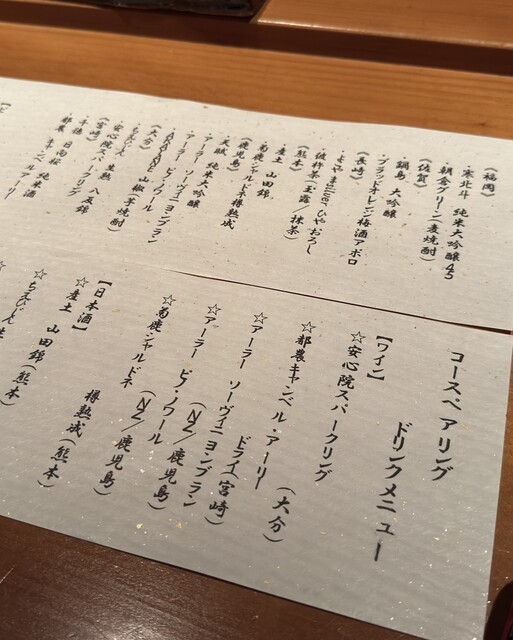 コースペアリング
ドリンクメニュー
【ワイン】
☆安心院スパークリング
(大分)
☆都農キャンベル・アーリー
ドライ(宮崎)
☆アーラー ソーヴィニヨンブラン
(NZ/鹿児島)
☆アーラー ピノ・ノワール
(NZ/鹿児島)
☆菊鹿シャルドネ
樽熟成(熊本)
【日本酒】
☆産土 山田錦(熊本)
☆ちえびじん
(福岡)
・寒北斗 純米大吟醸45
・朝倉グリーン(麦焼酎)
(佐賀)
・鍋島 大吟醸
・ブラッドオレンジ梅酒アポロ
(長崎)
・よこやまsilverひやおろし
・彼杵茶(玉露/抹茶)
(熊本)
・産土 山田錦
・菊鹿シャルドネ樽熟成
(鹿児島)
・天賦 純米大吟醸
・アーラー ソーヴィニヨンブラン
・アーラー ピノ・ノワール
(大分)
・ちえびじん 生熟 八反錦
・安心院スパークリング
(宮崎)
・千徳
・都農 キャンベルアーリー